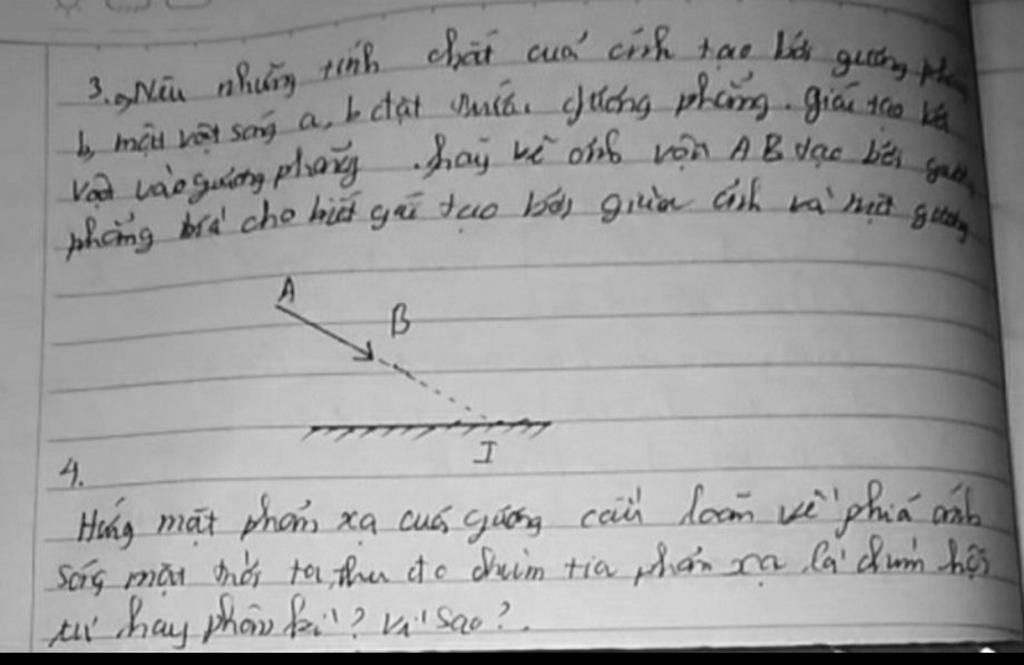 3. a, Nêu những tính chất cuả ảnh tạo bởi gương phẳng
b, một vật sáng a, b đặt trước gương phẳng. giác tạo bởi
vật vào gương phẳng. hãy vẽ ảnh vận AB tạo bởi gương
phẳng và cho biết gái tạo bởi giữa ảnh và mặt gương
A
B
I
4.
Hướng mặt phản xạ cuả gương cầu loãm về phiá ánh
sáng mặt trời ta, thu đc chùm tia phản xạ là chùm hội
tụ hay phân kì? Vì sao?.